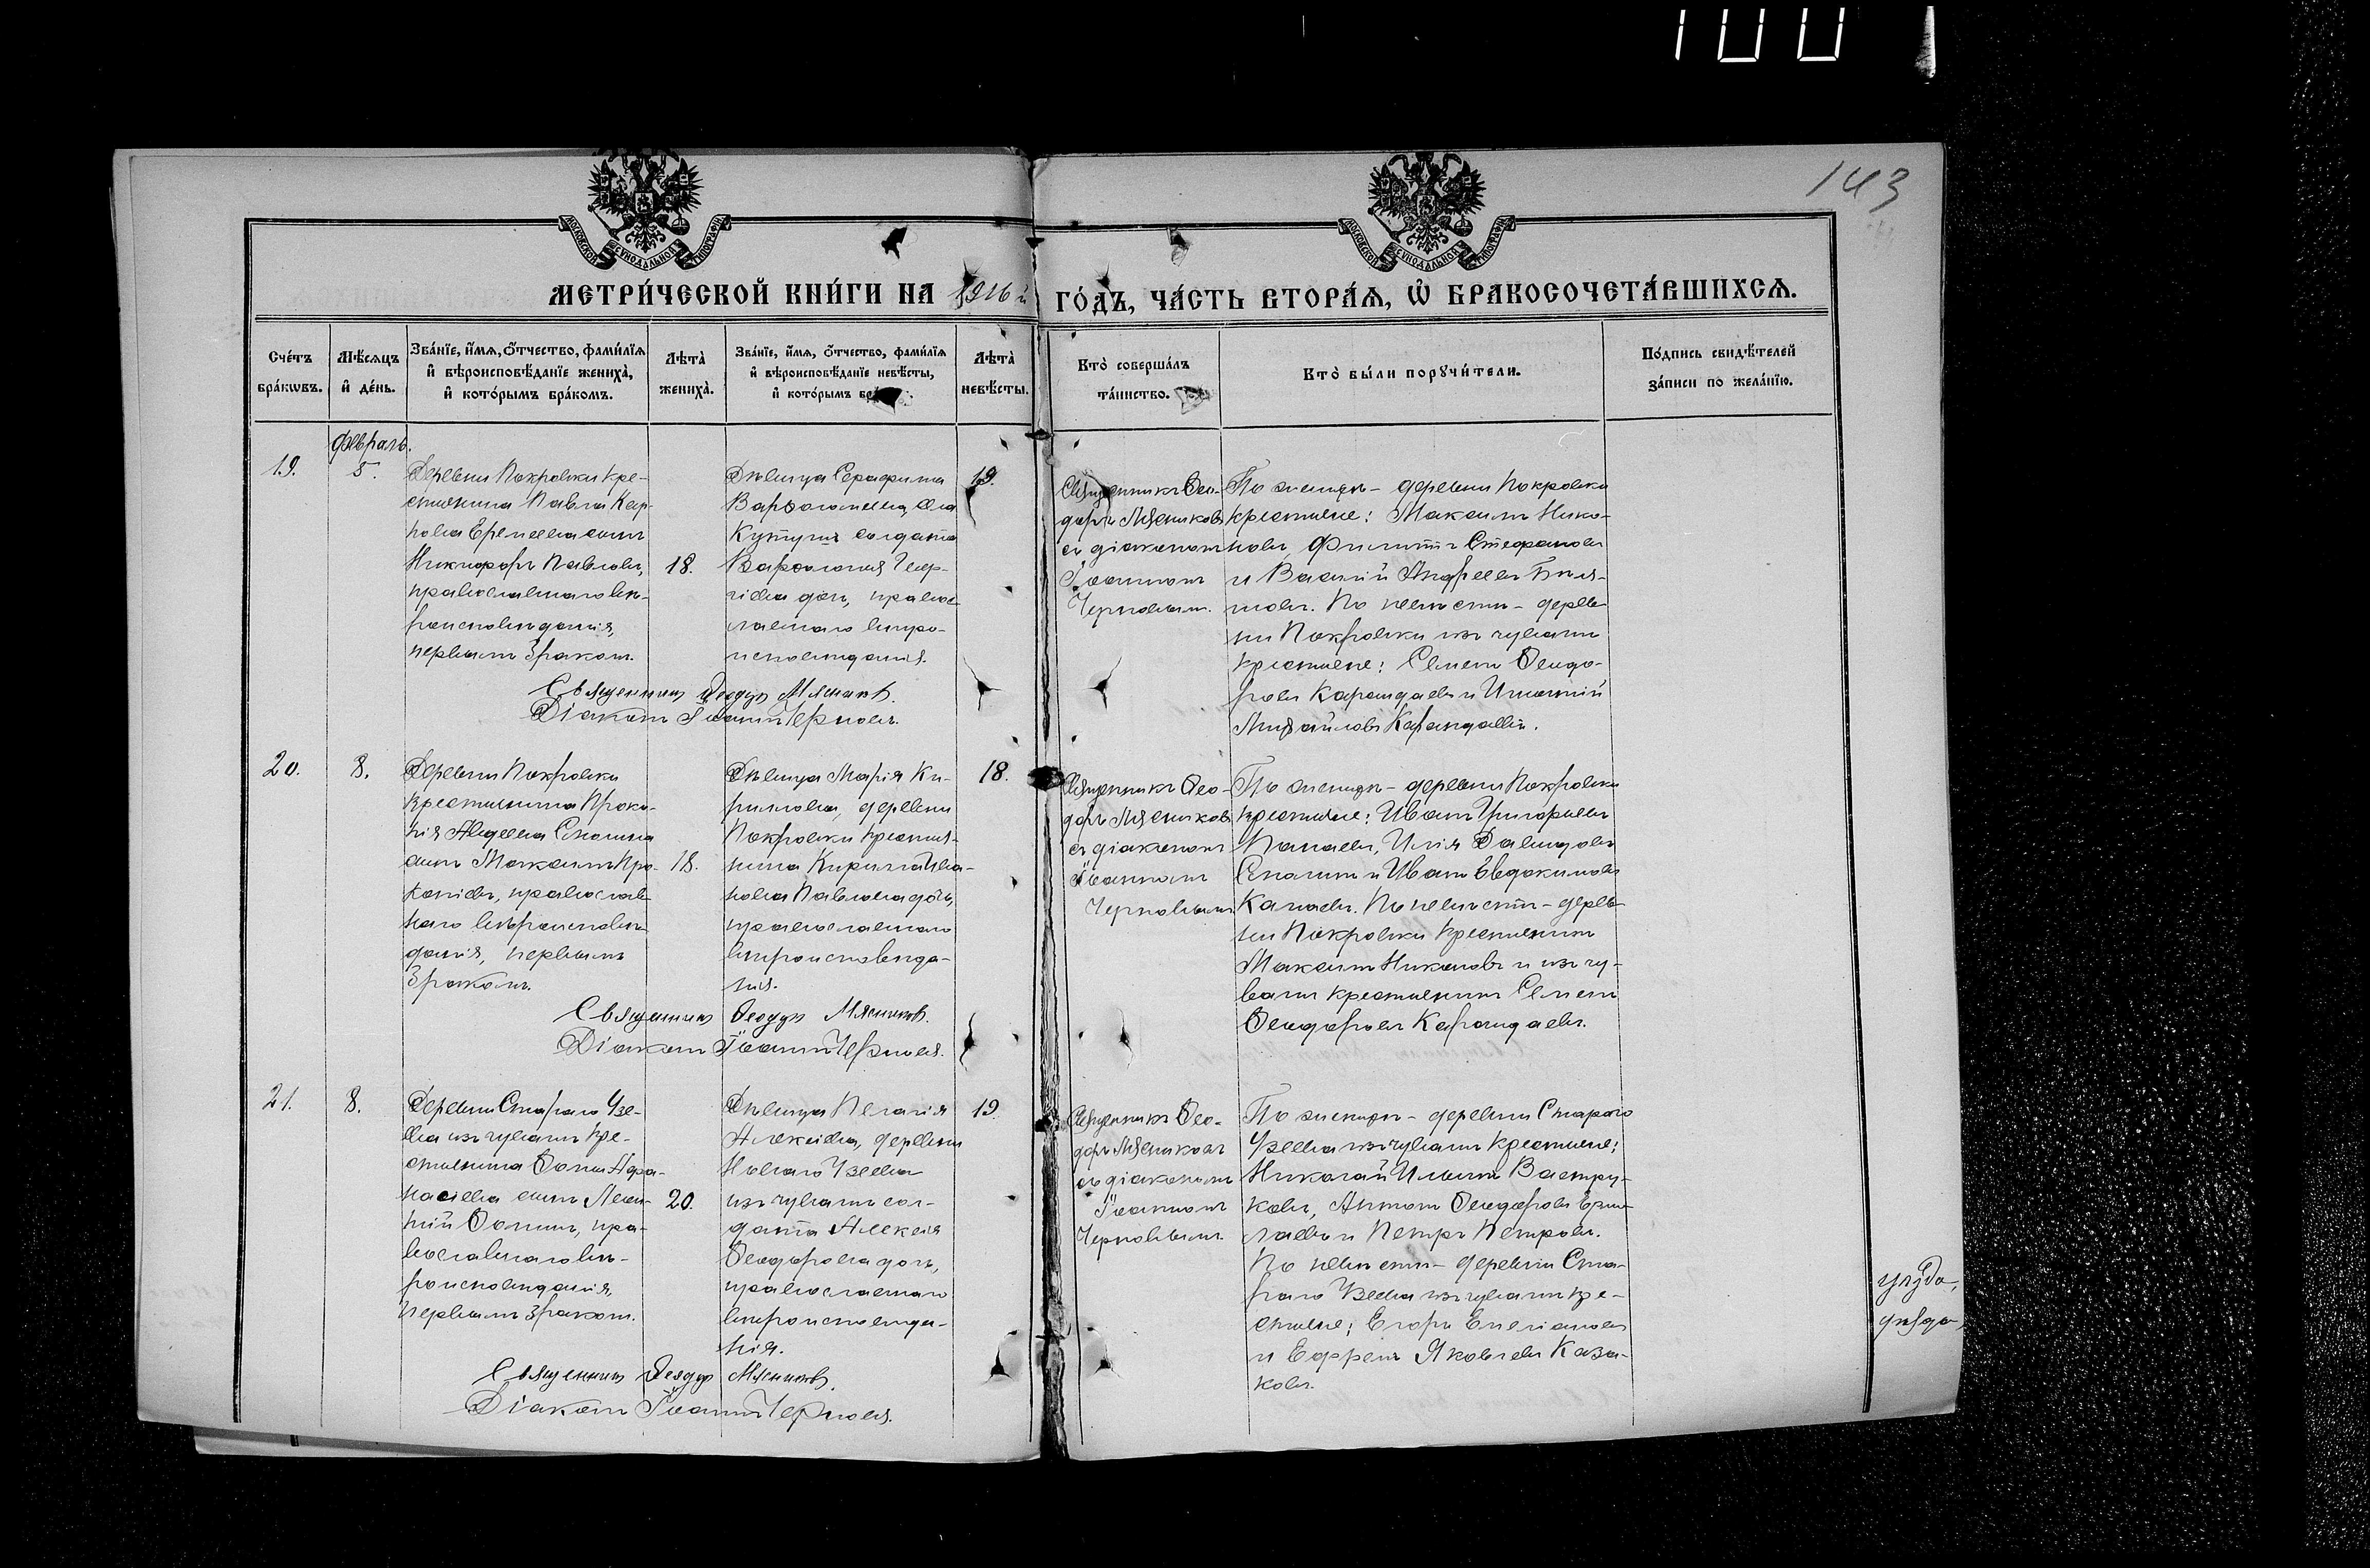 143
МЕТРИ́ЧЕСКОЙ КНИ́ГИ НА 1916 й ГО́ДЪ, ЧА́СТЬ ВТОРА́Ѧ, Ѡ҆ БРАКОСОЧЕТА́ВШИХСѦ.
Сче́тъ бра́кѡвъ.
Мѣ́сѧцъ и҆ де́нь.
Зва́нїе, и҆́мѧ, ѻ҆́тчество, фами́лїѧ и҆ вѣроисповѣ́данїе жениха̀, и҆ кото́рымъ бра́комъ.
Лѣта̀ жениха̀.
Зва́нїе, и҆́мѧ, ѻ҆́тчество, фами́лїѧ и҆ вѣроисповѣ́данїе невѣ́сты, и҆ кото́рымъ
Лѣта̀ невѣ́сты.
Кто̀ соверша́лъ та́инство.
Кто̀ бы́ли порꙋчи́тели.
По́дпись свидѣ́телей за́писи по жела́нїю.
Февраль.
19.
5.
Деревни Покровки кре-
стьянина Павла Кар-
пова Еремеева сынъ
Никифоръ Павловъ,
православнаго вѣ-
роисповѣданія,
первымъ бракомъ.
18.
Дѣвица Серафима
Варѳоломеева, села
солдата
Варѳоломея Геор-
гіева дочь, правос-
лавнаго вѣро-
исповѣданія.
19.
Священникъ Ѳео-
доръ Мясниковъ
съ діакономъ
Іоанномъ
Черновымъ.
По женихѣ - деревни Покровки
крестьяне: Максимъ Нико-
новъ, Филиппъ Стефановъ
и Василій Андреевъ
По невѣстѣ - дерев-
ни Покровки изъ чувашъ
крестьяне: Семенъ Ѳеодо-
ровъ Карандаевъ и Игнатій
Михайловъ Карандаевъ.
Священникъ Ѳеодоръ Мясниковъ.
Діаконъ Іоаннъ Черновъ.
20.
8.
Деревни Покровки
крестьянина Проко-
пія Авдеева Спагина
сынъ Максимъ Про-
копіевъ, православ-
наго вѣроисповѣ-
данія, первымъ
бракомъ.
18.
Дѣвица Марія Ки-
риллова, деревни
Покровки крестья-
нина Кирилла Ива-
нова Павлова дочь,
православнаго
вѣроисповѣда-
нія.
18.
Священникъ Ѳео-
доръ Мясниковъ
съ діакономъ
Іоанномъ
Черновымъ.
По женихѣ - деревни Покровки
крестьяне: Иванъ Григорьевъ
Илія Давидовъ
Спагинъ и Иванъ Евдокимовъ
Канаевъ. По невѣстѣ - дерев-
ни Покровки крестьянинъ
Максимъ Никоновъ и изъ чу-
вашъ крестьянинъ Семенъ
Ѳеодоровъ Карандаевъ.
Священникъ Ѳеодоръ Мясниковъ.
Діаконъ Іоаннъ Черновъ.
21.
8.
Деревни Стараго Узе-
ева изъ чувашъ кре-
стьянина Ѳомы Аѳа-
насіева сынъ
Ѳоминъ, пра-
вославнаго вѣ-
роисповѣданія,
первымъ бракомъ.
20.
Дѣвица Пелагія
Алексіева, деревни
Новаго Узеева
изъ чувашъ сол-
дата Алексія
Ѳеодорова дочь,
православнаго
вѣроисповѣда-
нія.
19.
Священникъ Ѳео-
доръ Мясниковъ
съ діакономъ
Іоанномъ
Черновымъ.
По женихѣ - деревни Стараго
Узеева изъ чувашъ крестьяне:
Николай Ильинъ Вастру-
ковъ, Антонъ Ѳеодоровъ Ерми-
лаевъ и Петръ Петровъ.
По невѣстѣ - деревни Ста-
раго Узеева изъ чувашъ кре-
стьяне: Егоръ
и Ефремъ Яковлевъ Каза-
ковъ.
Священникъ Ѳеодоръ Мясниковъ.
Діаконъ Іоаннъ Черновъ.